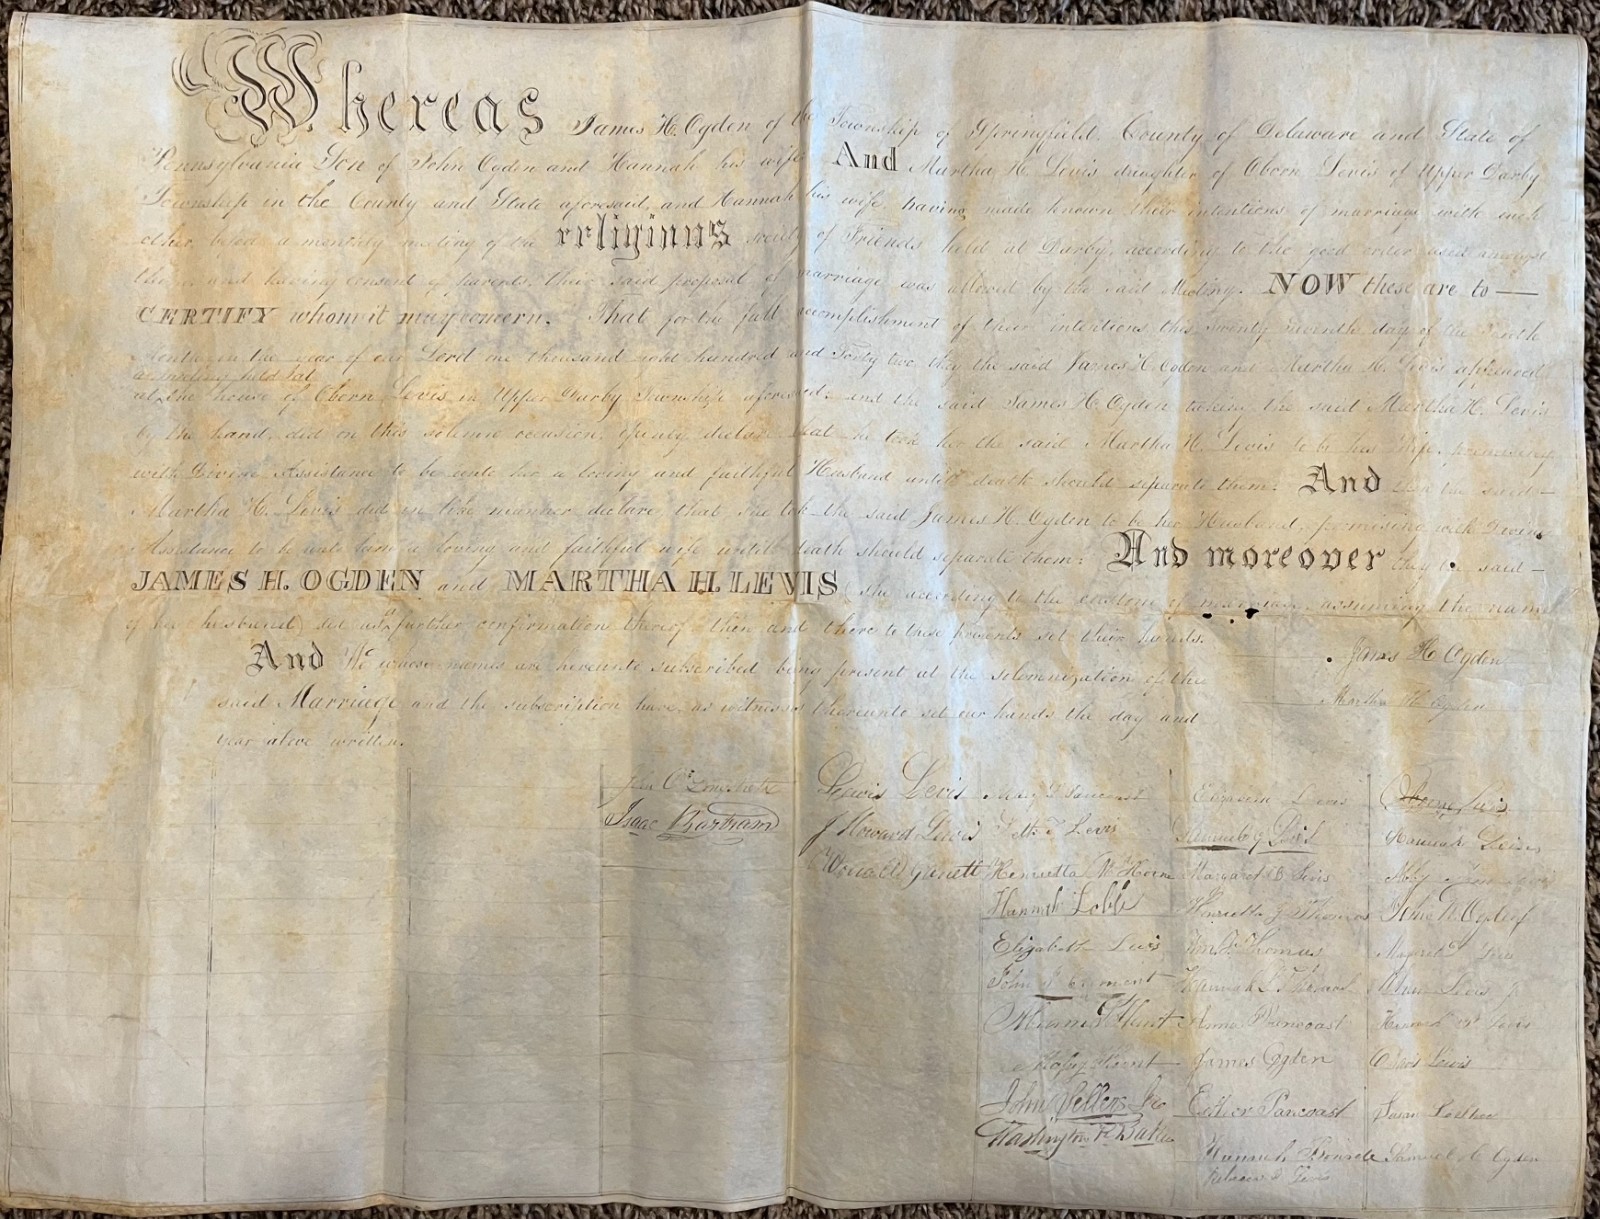 Whereas James H. Ogden of the Township of Springfield, County of Delaware and State of
Pennsylvania Son of John Ogden and Hannah his wife And Martha H. Levis daughter of Oborn Levis of Upper Darby
Township in the County and State aforesaid, and Hannah his wife, having made known their intentions of marriage with each
other, before a monthly meeting of the religious society of Friends held at Darby, according to the good order used amongst
them, and having consent of parents, their said proposal of marriage was allowed by the said Meeting. NOW these are to —
CERTIFY whom it may concern. That for the full accomplishment of their intentions this twenty seventh day of the
Month in the year of our Lord one thousand eight hundred and forty two they the said James H. Ogden and Martha H. Levis appeared
a meeting held at
at the house of Oborn Levis in Upper Darby Township aforesaid. and the said James H. Ogden taking the said Martha H. Levis
by the hand, did on this solemn occasion, openly declare that he took her the said Martha H. Levis to be his Wife, promising
with Divine Assistance to be unto her a loving and faithful Husband until death should separate them: And then the said —
Martha H. Levis did in like manner declare, that she took the said James H. Ogden to be her Husband, promising with Divine
Assistance to be unto him a loving and faithful wife until death should separate them: And moreover they the said —
JAMES H. OGDEN and MARTHA H. LEVIS (she according to the custom of marriage, assuming the name
of her husband) did as a further confirmation thereof then and there to these presents set their hands.
And We whose names are hereunto subscribed being present at the solemnization of the
said Marriage and the subscription have as witnesses thereunto set our hands the day and
year above written.
James H Ogden
Martha H Ogden
Lewis Levis
Elizabeth Levis
Oborn Levis
Isaac Bartram
J Howard Lewis
Levis
Hannah Levis
Garrett
Henrietta Horne
Margaret B Levis
Abby
Hannah Lobb
Henrietta Thomas
John Ogden
Elizabeth Levis
Thomas
Margaret
John
Hannah
Levis
Hunt
Anna Pancoast
Hannah Levis
Hunt
James Ogden
Levis
John Sellers
Esther Pancoast
Susan
Washington
Hannah
Samuel Ogden
Rebecca